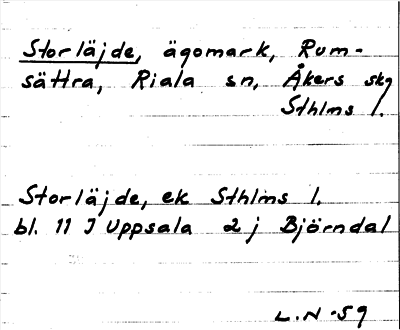 Storläjde, ägomark, Rum-
sättra, Riala sn, Åkers skg
Sthlms l.
Storläjde, ek Sthlms l.
bl. 11 J Uppsala 2 j Björndal
L.N-59